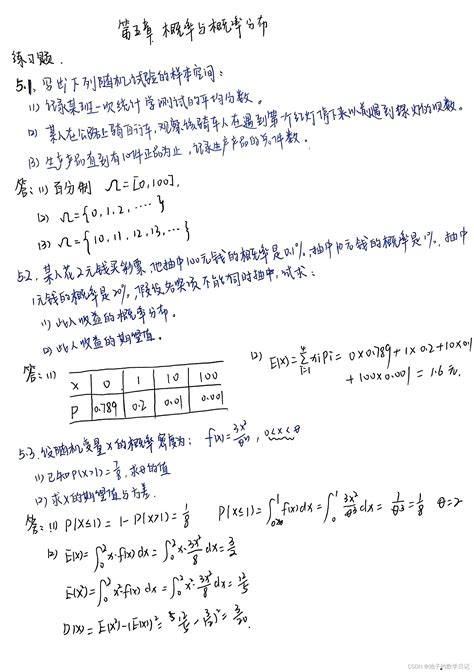 第五章 概率与概率分布
练习题.
5.1. 写出下列随机试验的样本空间:
(1) 记录某班一次统计学测试的平均分数。
(2) 某人在公路上骑自行车,观察该骑车人在遇到第一个红灯停下来以前遇到绿灯的次数。
(3) 生产产品直到有10件正品为止,记录生产产品的总件数。
答: (1) 百分制 Ω=[0,100].
(2) Ω={0,1,2,····}
(3) Ω={10,11,12,13,···}
5.2. 某人花2元钱买彩票,他抽中100元钱的概率是0.1%,抽中10元钱的概率是1%,抽中
1元钱的概率是20%,假设各奖项不能同时抽中,试求:
(1) 此人收益的概率分布。
(2) 此人收益的期望值。
答: (1)
X 0 1 10 100
P 0.789 0.2 0.01 0.001
(2) E(X)=∑⁴ᵢ₌₁xiPi=0×0.789+1×0.2+10×0.01
+100×0.001=1.6元.
5.3. 设随机变量X的概率密度为: f(x)=3x²/θ³, 0<x<θ
(1) 已知P(X>1)=7/8,求θ的值
(2) 求X的期望值与方差.
答: (1) P(X≤1)=1-P(X>1)=1/8 P(X≤1)=∫¹f(x)dx=∫₀¹3x²/θ³dx=1/θ³=1/8 θ=2
(2) E(X)=∫₀²x·f(x)dx=∫₀²x·3x²/8dx=3/2
E(X²)=∫₀²x²f(x)dx=∫₀²x²·3x²/8dx=12/5
D(X)=E(X²)-(E(X))²=12/5-(3/2)²=3/20.
CSDN @池子的数学日记